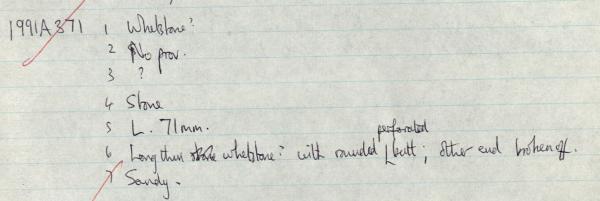 1991A371 1 Whetstone?
2 No prov.
3 ?
4 Stone
5 L. 71mm.
6 Long thin stone whetstone? with rounded perforated butt; other end broken off.
7 Sandy.